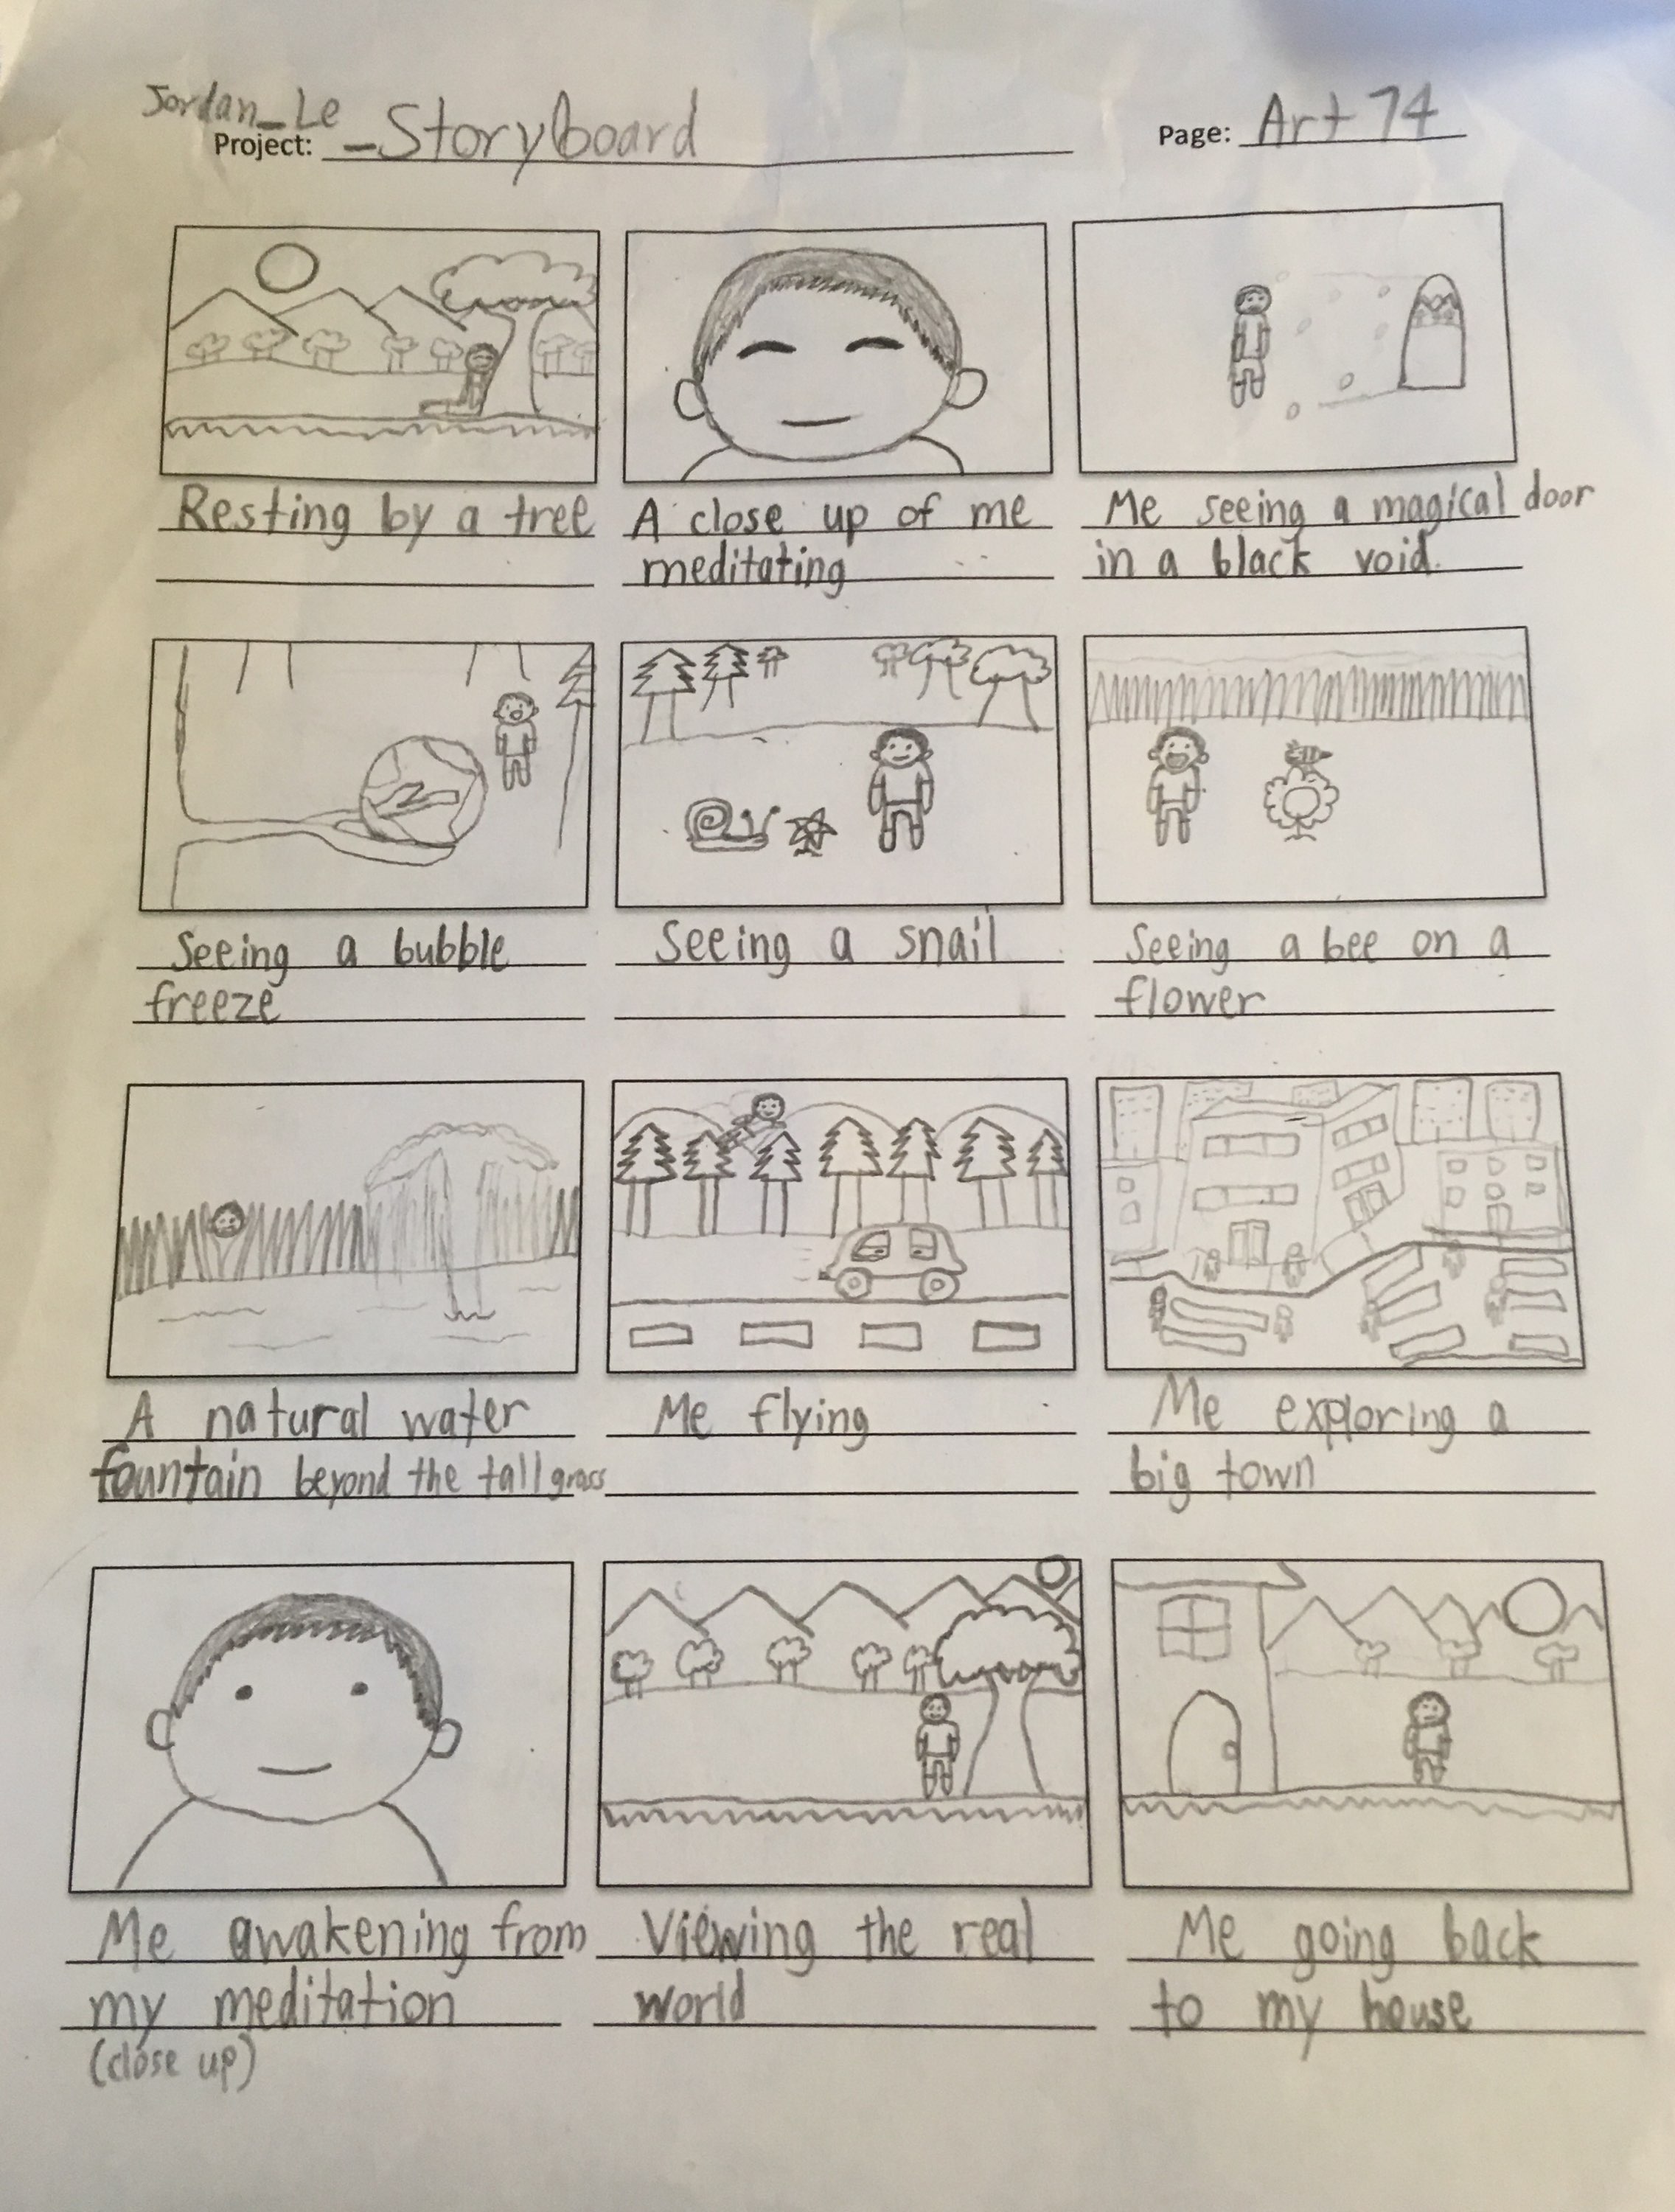 Jordan_Le
Project: -Storyboard
Page: Art 74
Resting by a tree
A close up of me
meditating
Me seeing a magical door
in a black void.
Seeing a bubble
freeze
Seeing a snail
Seeing a bee on a
flower
A natural water
fountain beyond the tall grass
Me flying
Me exploring a
big town
Me awakening from
my meditation
(close up)
Viewing the real
world
Me going back
to my house